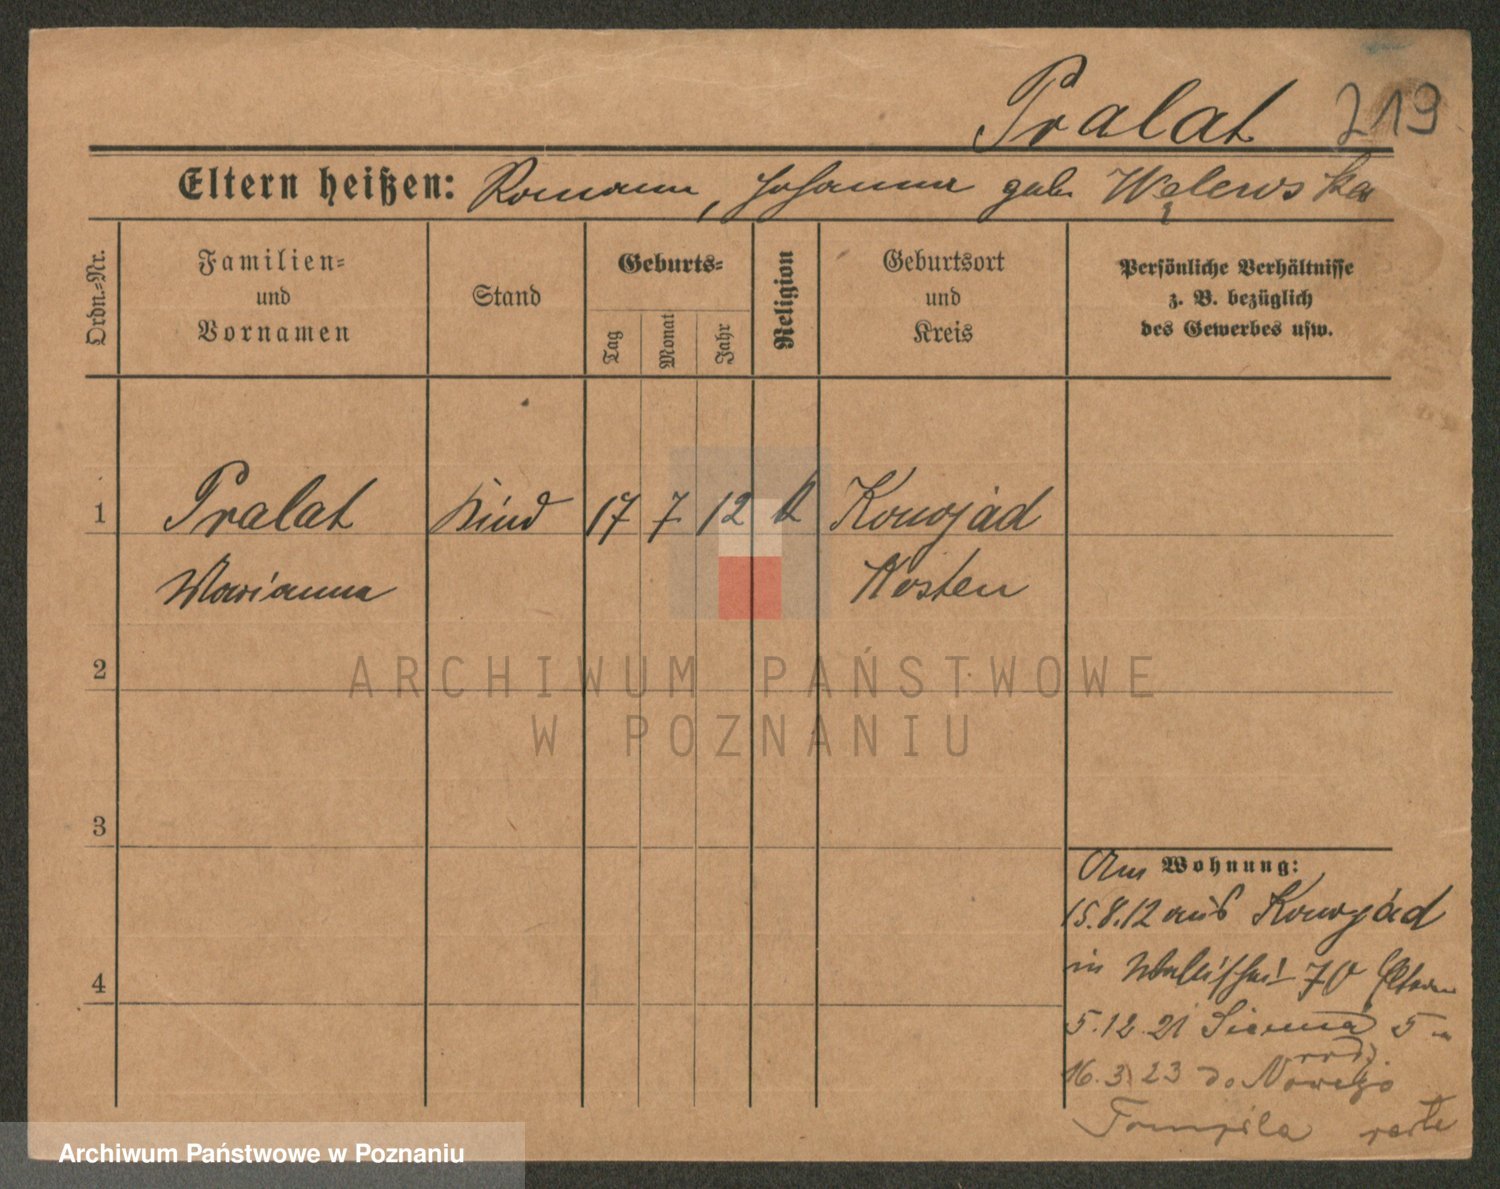 Pralat 219
Eltern heißen: Romann, Johanna geb. Wełewska
Ordn.=Nr.
Familien=
und
Vornamen
Stand
Geburts=
Tag
Monat
Jahr
Religion
Geburtsort
und
Kreis
Persönliche Verhältnisse
z. B. bezüglich
des Gewerbes usw.
1 Pralat Kind 17 7 12 k Konojad
Marianna Kosten
2
3
4
Am Wohnung:
15.8.12 aus Konojad
in Wallischei 70 Eltern
5.12.21 Sienna 5
rodz.
16.3.23 do Nowego
Tomyśla
ARCHIWUM PAŃSTWOWE
W POZNANIU
Archiwum Państwowe w Poznaniu